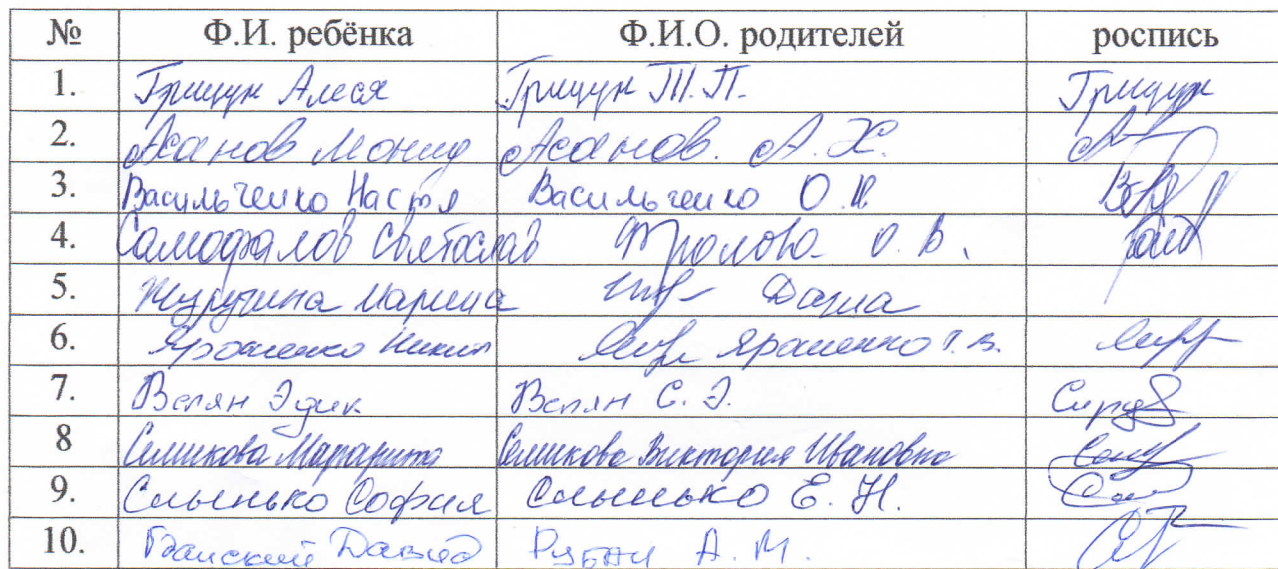 № Ф.И. ребёнка Ф.И.О. родителей роспись
1. Грищук Алеся Грищук Т.П. Грищук
2. Асанов Асанов. А.Х.
3. Васильченко Настя Васильченко О.
4. Самофалов Святослав Фролова О.В.
5. Марина Даша
6. Ярошенко Никит Ярошенко Г.В.
7. Эдик С.Э.
8 Семикова Маргарита Семикова Виктория Ивановна
9. Слынько София Слынько Е.Н.
10. Давид Рубан А.М.